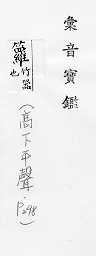 彙音寶鑑
籮 竹器也
(高下平聲, P298)